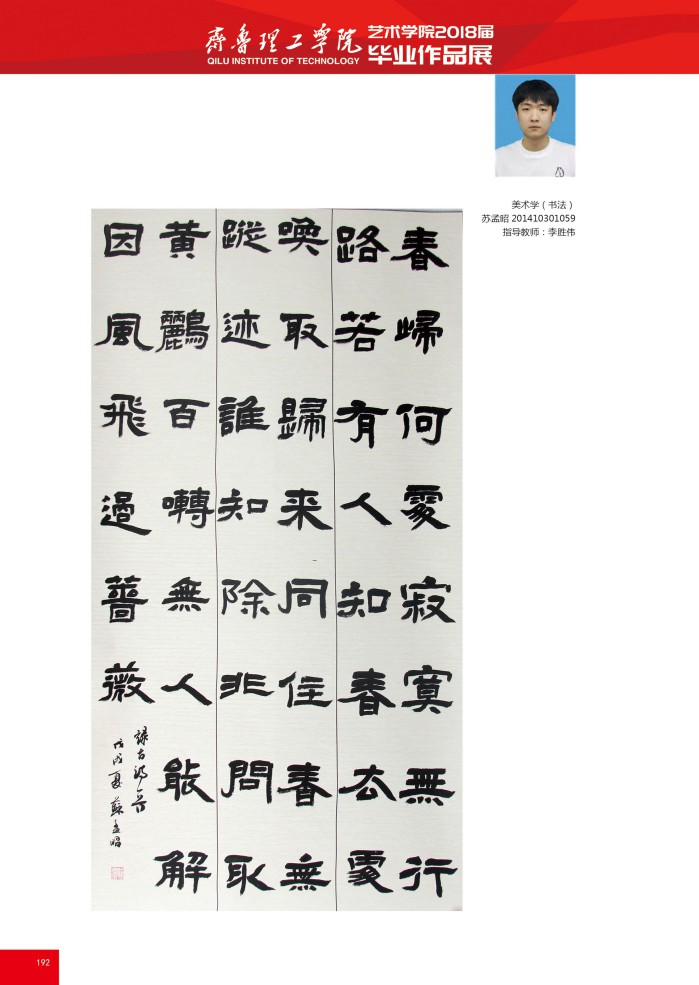 齊魯理工學院
QILU INSTITUTE OF TECHNOLOGY
艺术学院2018届
毕业作品展
美术学（书法）
苏孟昭 201410301059
指导教师：李胜伟
春㱕何處寂寞無行
路若有人知春去處
喚取歸来同住春無
蹤迹誰知除非問取
黄鸝百囀無人能解
因風飛過薔薇
戊戌夏蘇孟昭
192